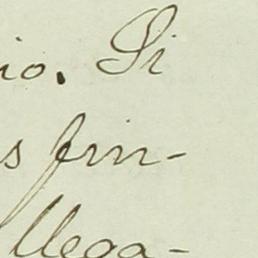 io. Si
s fin-
llega-